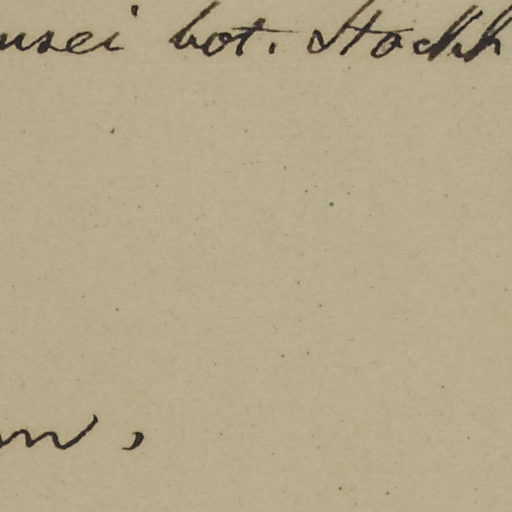 usei bot. Stockh